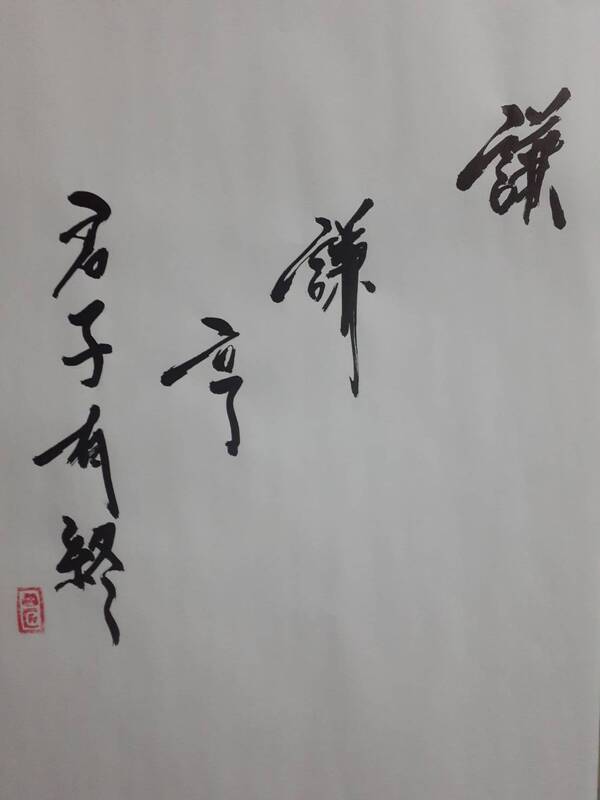 謙
謙
亨
君子有終